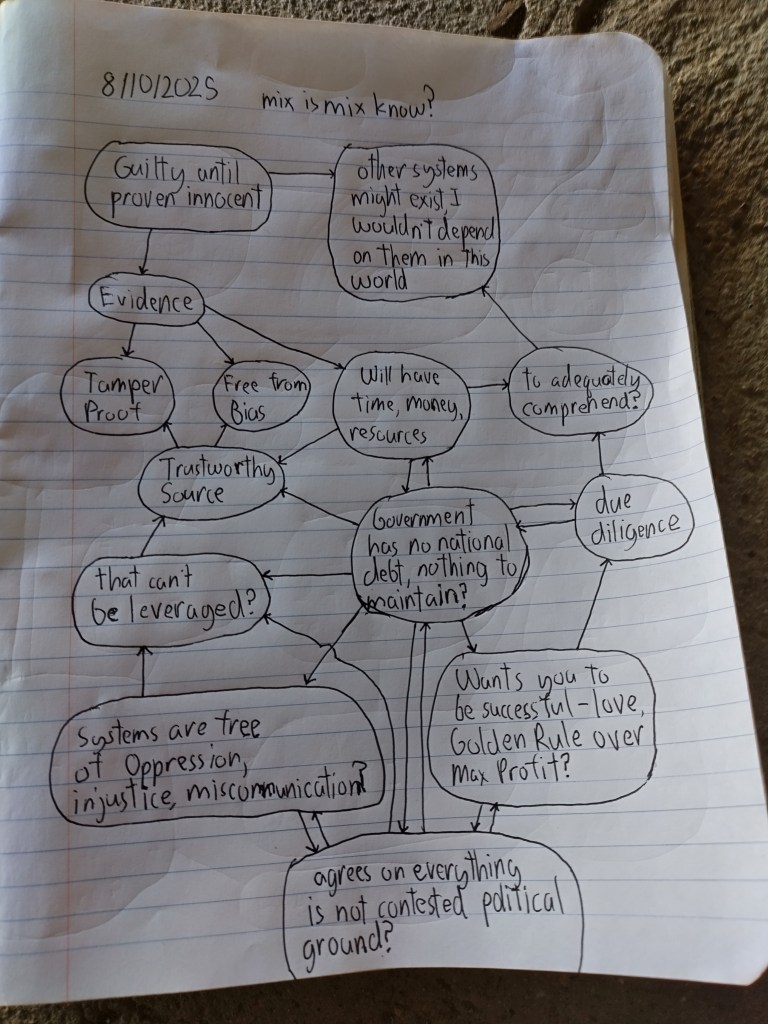 8/10/2025
mix is mix know?
Guilty until
proven innocent
other systems
might exist I
wouldn't depend
on them in this
world
Evidence
Tamper
Proof
Free from
Bias
Will have
time, money,
resources
to adequately
comprehend?
Trustworthy
Source
Government
has no national
debt, nothing to
maintain?
due
diligence
that can't
be leveraged?
Systems are free
of Oppression,
injustice, miscommunication?
Wants you to
be successful-love,
Golden Rule over
Max Profit?
agrees on everything
is not contested political
ground?